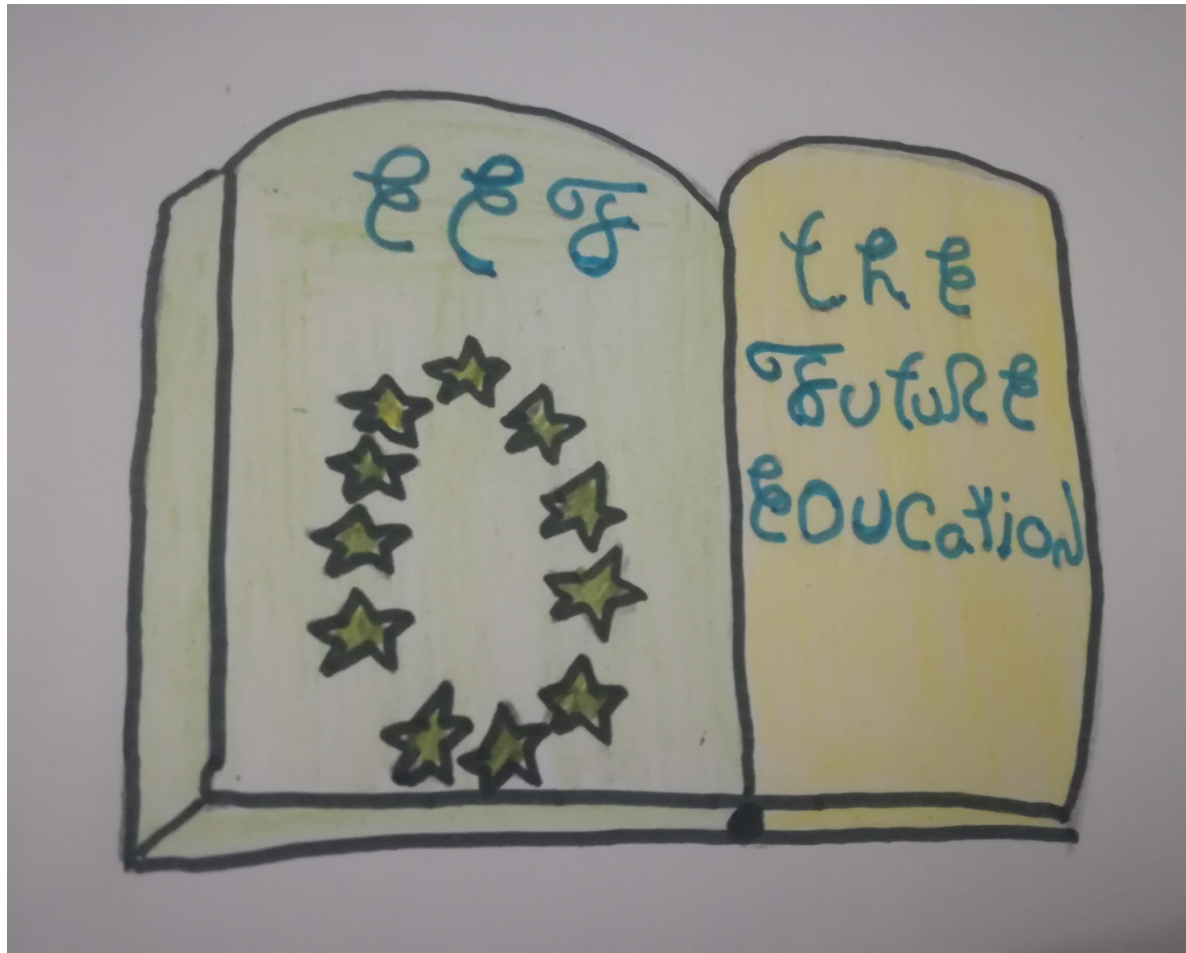 EEF
the
FutuRE
EDUCatioN